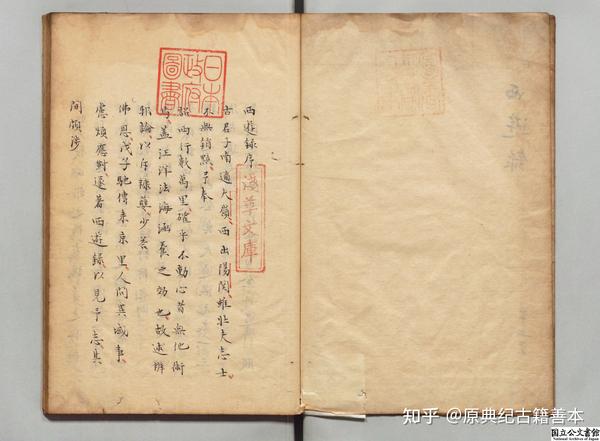 西遊錄
日本政府圖書
淺草文庫
西遊錄序
古君子南逾大嶺西出陽関雖壯夫志士
不無銷黯予奉
詔西行數萬里確乎不動心者無他術
焉蓋汪洋法海涵養之効也故述辨
邪論以斥糠蘖少荅
佛恩戊子馳傳來京里人問異域事
慮煩應對遂著西遊錄以見予志其
間頗涉
知乎 @原典纪古籍善本
国立公文書館
National Archives of Japan